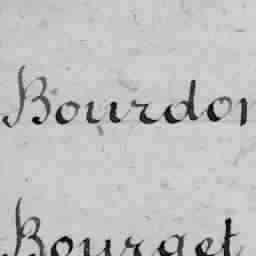 Bourdon
Bourget